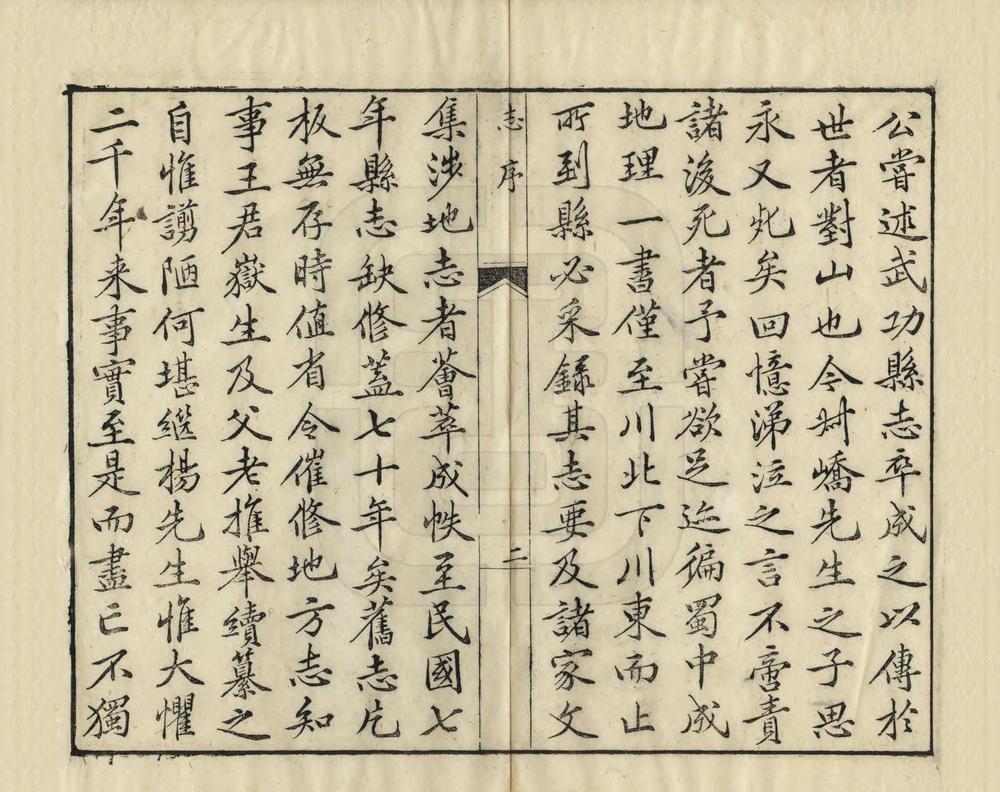 公嘗述武功縣志卒成之以傳於
世者對山也令尌嶠先生之子思
永又死矣回憶涕泣之言不啻責
諸後死者予嘗欲足迹徧蜀中成
地理一書僅至川北下川東而止
所到縣必采錄其志要及諸家文
志序
二
集涉地志者薈萃成帙至民國七
年縣志缺修蓋七十年矣舊志片
板無存時值省令催修地方志知
事王君嶽生及父老推舉續纂之
自惟謭陋何堪繼楊先生惟大懼
二千年来事實至是而盡亡不獨